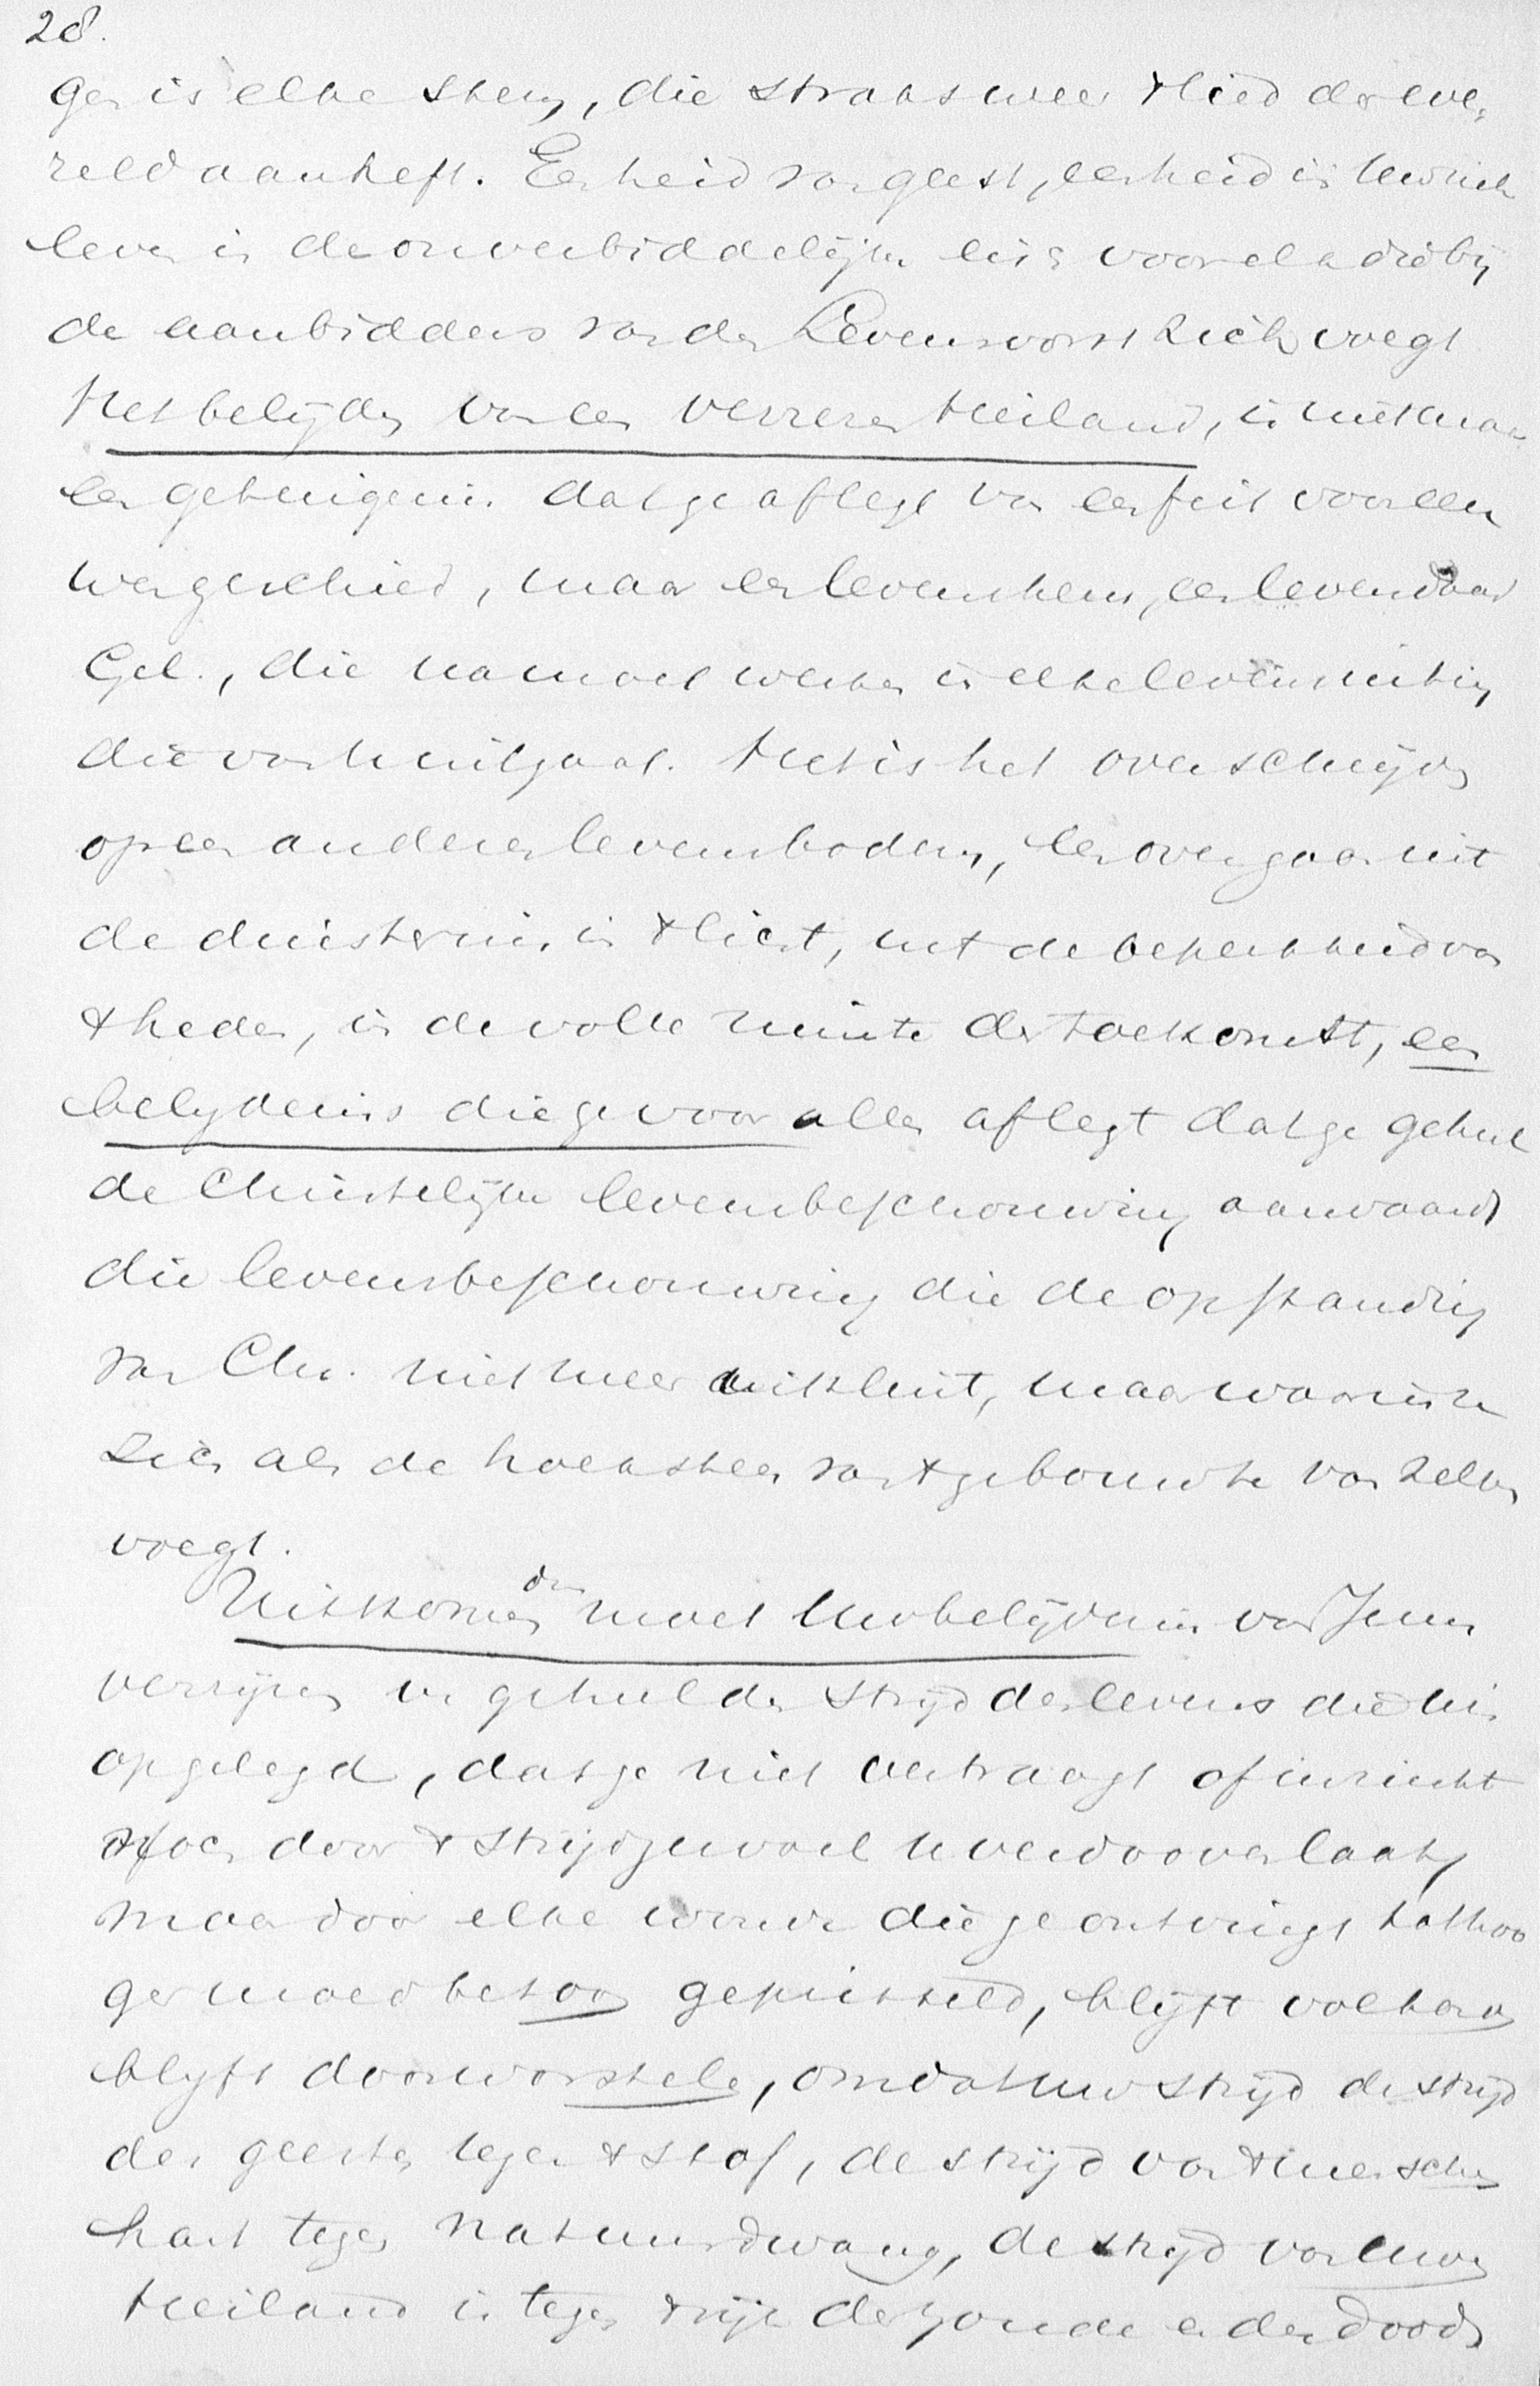 28.
gen is elke stem, die straks weer 't lied der we-
reld aanheft. Eenheid van geest, eenheid in bewust
leven is de onverbiddelijke eisch voor elk die bij
de aanbidders van den Levensvorst zich voegt
Het belijden van een verrezen Heiland, is niet maar
een getuigenis dat ge aflegt van een feit voor eeu
wen geschied, maar een levenskeus, een levensdaad
Gel., die na moet werken in elke levensuiting
die van u uitgaat. Het is het overschrijden
op een anderen levensbodem, een overgaan uit
de duisternis in 't licht, uit de beperktheid van
't heden, in de volle ruimte der toekomst, een
belydenis die ge voor allen aflegt dat ge geheel
de Christelijke levensbeschouwing aanvaardt
die levensbeschouwing die de opstanding
van Chr. niet meer uitsluit, maar waarin ze
zich als de hoeksteen van 't gebouwte van zelven
voegt.
Uitkomen dan moet Uw belijdenis van Jezus
verrijzen in geheel den strijd des levens die U is
opgelegd, dat ge niet vertraagt of inzinkt
noch door 't strijdgewoel U verdooven laat,
maar door elke wonde die ge ontvingt tot hoo
ger moedbetoon geprikkeld, blijft volharden
blyft doorworstelen, omdat Uw strijd de strijd
des geestes tegen 't stof, de strijd van 't menschen
hart tegen natuurdwang, de strijd van Uwen
Heiland is tegen 't rijk der zonde en des doods